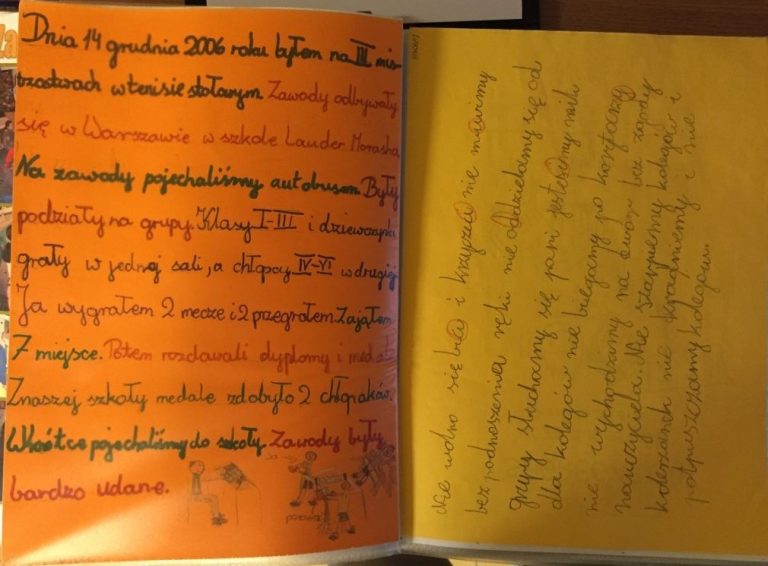 Dnia 14 grudnia 2006 roku byłem na III mis-
trzostwach w tenisie stołowym. Zawody odbywały
się w Warszawie w szkole Lauder Morasha
Na zawody pojechaliśmy autobusem. Były
podziały na grupy. Klasy I-III i dziewczynki
grały w jednej sali, a chłopcy IV-VI w drugiej
Ja wygrałem 2 mecze i 2 przegrałem. Zająłem
7 miejsce. Potem rozdawali dyplomy i medale
Znaszej szkoły medale zdobyło 2 chłopaków.
Wkrótce pojechaliśmy do szkoły. Zawody były
bardzo udane.
Nie wolno się bić i krzyczeć nie mówimy
bez podnoszenia ręki nie oddzielamy się od
grupy słuchamy się pani jesteśmy mili
dla kolegów nie biegamy po korytarzu
nie wychodzimy na dwór bez zgody
nauczyciela. Nie szarpiemy kolegów i
koleżanek nie kradniemy i nie
potpuszczamy kolegów.